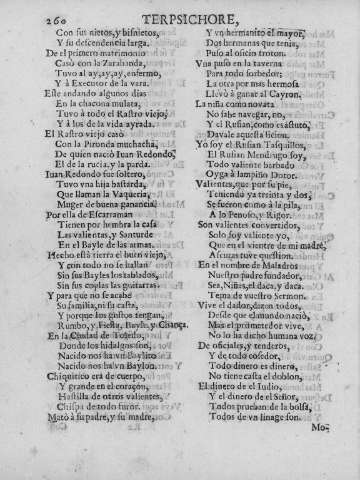 260 TERPSICHORE,
Con sus nietos, y bisnietos,
Y su descendencia larga.
De el primero matrimonio
Casò con la Zarabanda,
Tuvo al ay, ay, ay, enfermo,
Y à Executor de la vara.
Este andando algunos dias
En la chacona mulata,
Tuvo à todo el Rastro viejo,
Y à los de la vida ayrada.
El Rastro viejo casò
Con la Pironda muchacha,
De quien naciò Iuan Redondo,
El de la rucia, y la parda.
Iuan Redondo fue soltero,
Tuvo vna hija bastarda,
Que llaman la Vaqueria,
Muger de buena ganancia.
Por ella de Escarraman
Tienen por hembra la casa
Las valientes, y Santurde
En el Bayle de las armas.
Hecho està tierra el buen viejo,
Y con todo no se hallan
Sin sus Bayles los tablados,
Sin sus coplas las guitarras.
Y para que no se acabe
Su familia, ni su casta,
Y porque los gustos tengan,
Rumbo, y Fiesta, Bayle, y Chança.
En la Ciudad de Toledo,
Donde los hidalgos son,
Nacido nos ha vn Baylito
Nacido nos ha vn Baylon.
Chiquitico era de cuerpo,
Y grande en el coraçon,
Hastilla de otros valientes,
Chispa de todo furor.
Matò à su padre, y su madre,
Y vn hermanito el mayor,
Dos hermanas que tenia,
Puso al oficio troton.
Vna puso en la taverna
Para todo sorbedor;
La otra por mas hermosa
Llevò à ganar al Cayron.
La niña como novata
No sabe navegar, no,
Y el Rufian, como es astuto,
Davale aquesta licion.
Yo soy el Rufian Tasquillos,
El Rufian Mendrugo soy,
Todo valiente barbado
Oyga à lampiño Dotor.
Valientes, que por su pie,
Teniendo ya treinta y dos,
Se fueron como à la pila,
A lo Penoso, y Rigor.
Son valientes convertidos,
Solo soy valiente yo,
Que en el vientre de mi madre,
A scuras tuve question.
En el nombre de Maladros
Nuestro padre fundador,
Sea, Niñas, el daca, y daca
Tema de vuestro Sermon.
Vive el dador, daton todos,
Desde que el mundo naciò,
Mas el prometedor vive,
No lo ha dicho humana voz.
De oficiales, y tenderos,
Y de todo cosedor,
Todo dinero es dinero,
No tiene casta el doblon,
El dinero de el Iudio,
Y el dinero de el Señor,
Todos prueban de la bolsa,
Todos de vn linage son.
Mo-